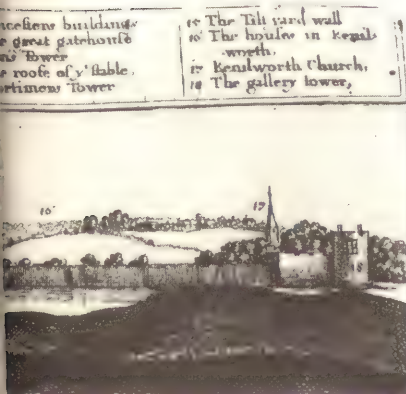 buildings
great gatehouse
Tower
roofe of yᵉ stable.
Tower
15 The Tilt yard wall
16 The houses in Kenil-
worth.
17 Kenilworth Church,
18 The gallery tower,
16
17